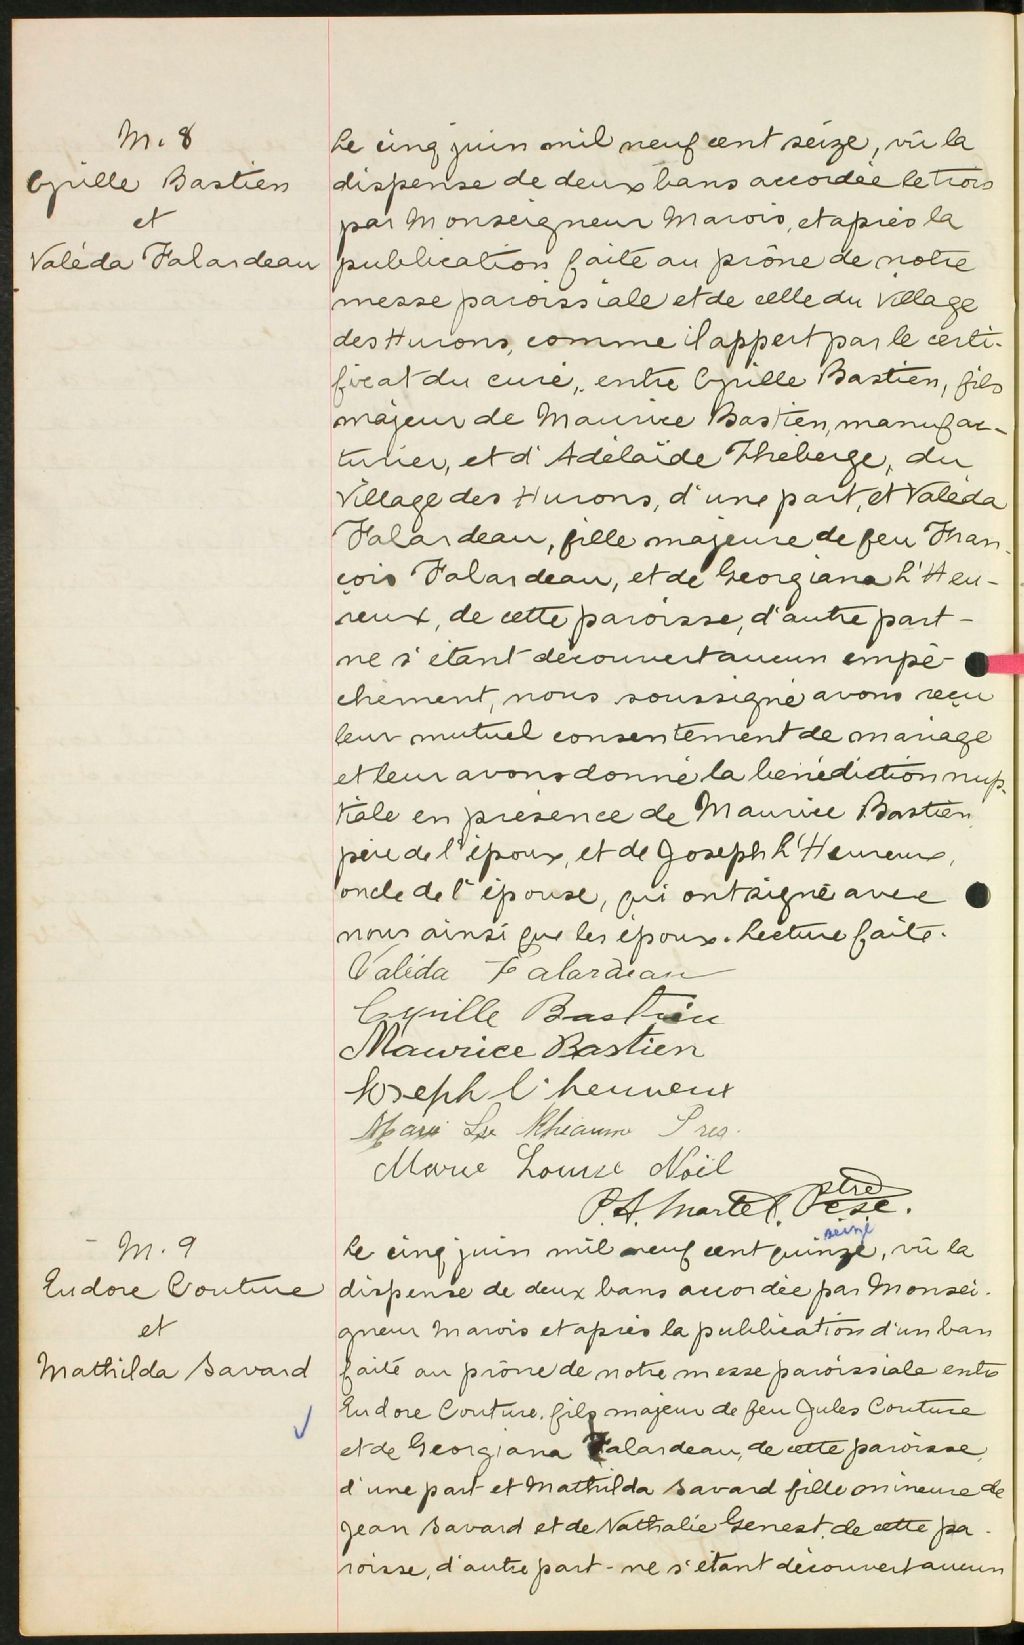 M. 8
Cyrille Bastien
et
Valéda Falardeau
Le cinq juin mil neuf cent seize, vû la
dispense de deux bans accordée le trois
par Monseigneur Marois, et après la
publication faite au prône de notre
messe paroissiale et de celle du Village
des Hurons, comme il appert par le certi-
ficat du curé, entre Cyrille Bastien, fils
majeur de Maurice Bastien, manufac-
turier, et d'Adélaïde Théberge, du
Village des Hurons, d'une part, et Valéda
Falardeau, fille majeure de feu Fran-
çois Falardeau, et de Georgiana L'Heu-
reux, de cette paroisse, d'autre part -
ne s'étant découvert aucun empê-
chement, nous soussigné avons reçu
leur mutuel consentement de mariage
et leur avons donné la bénédiction nup-
tiale en présence de Maurice Bastien,
père de l'époux, et de Joseph L'Heureux,
oncle de l'épouse, qui ont signé avec
nous ainsi que les époux. Lecture faite.
Valéda Falardeau
Cyrille Bastien
Maurice Bastien
Joseph l'heureux
Marie Lse Rhéaume
Marie Louise Noël
P. A. Martel, Ptre
M. 9
Eudore Couture
et
Mathilda Savard
seize
Le cinq juin mil neuf cent quinze, vû la
dispense de deux bans accordée par Monsei-
gneur Marois et après la publication d'un ban
faite au prône de notre messe paroissiale entre
Eudore Couture, fils majeur de feu Jules Couture
et de Georgiana Falardeau, de cette paroisse,
d'une part et Mathilda Savard fille mineure de
Jean Savard et de Nathalie Genest, de cette pa-
roisse, d'autre part - ne s'étant découvert aucun